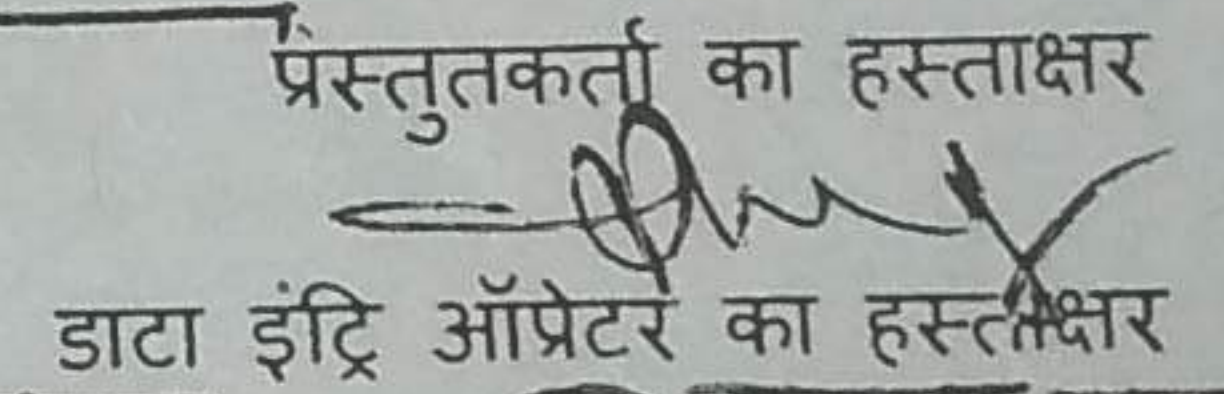 प्रस्तुतकर्ता का हस्ताक्षर
डाटा इंट्रि ऑप्रेटर का हस्ताक्षर